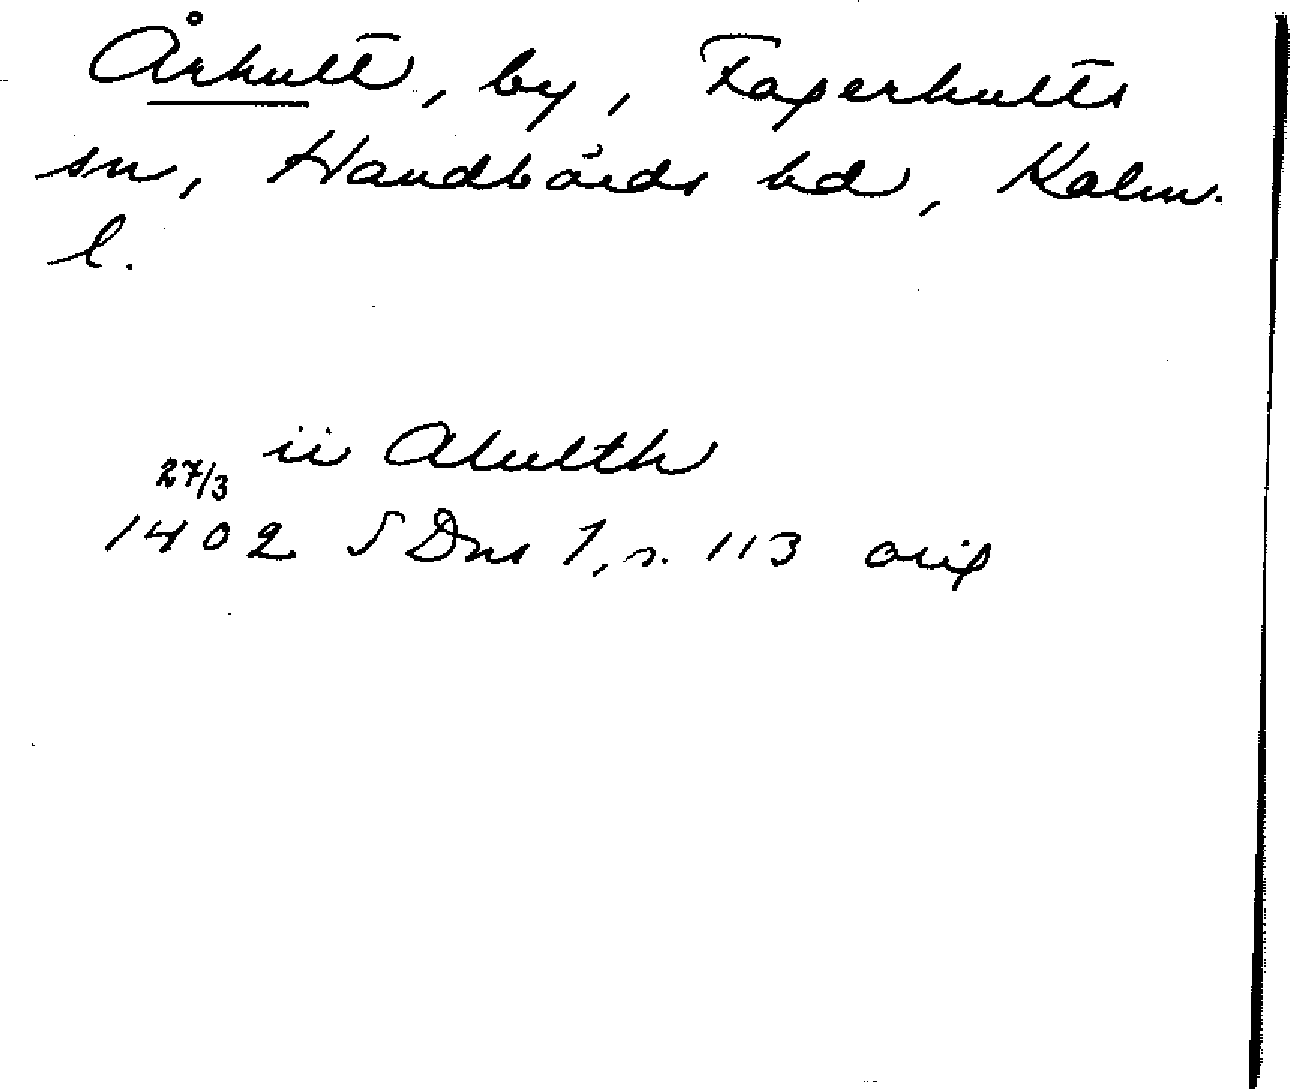 Århult, by, Fagerhults
sn, Handbörds hd, Kalm.
l.
ii Ahulth
27/3
1402 SDns 1, s. 113 orig